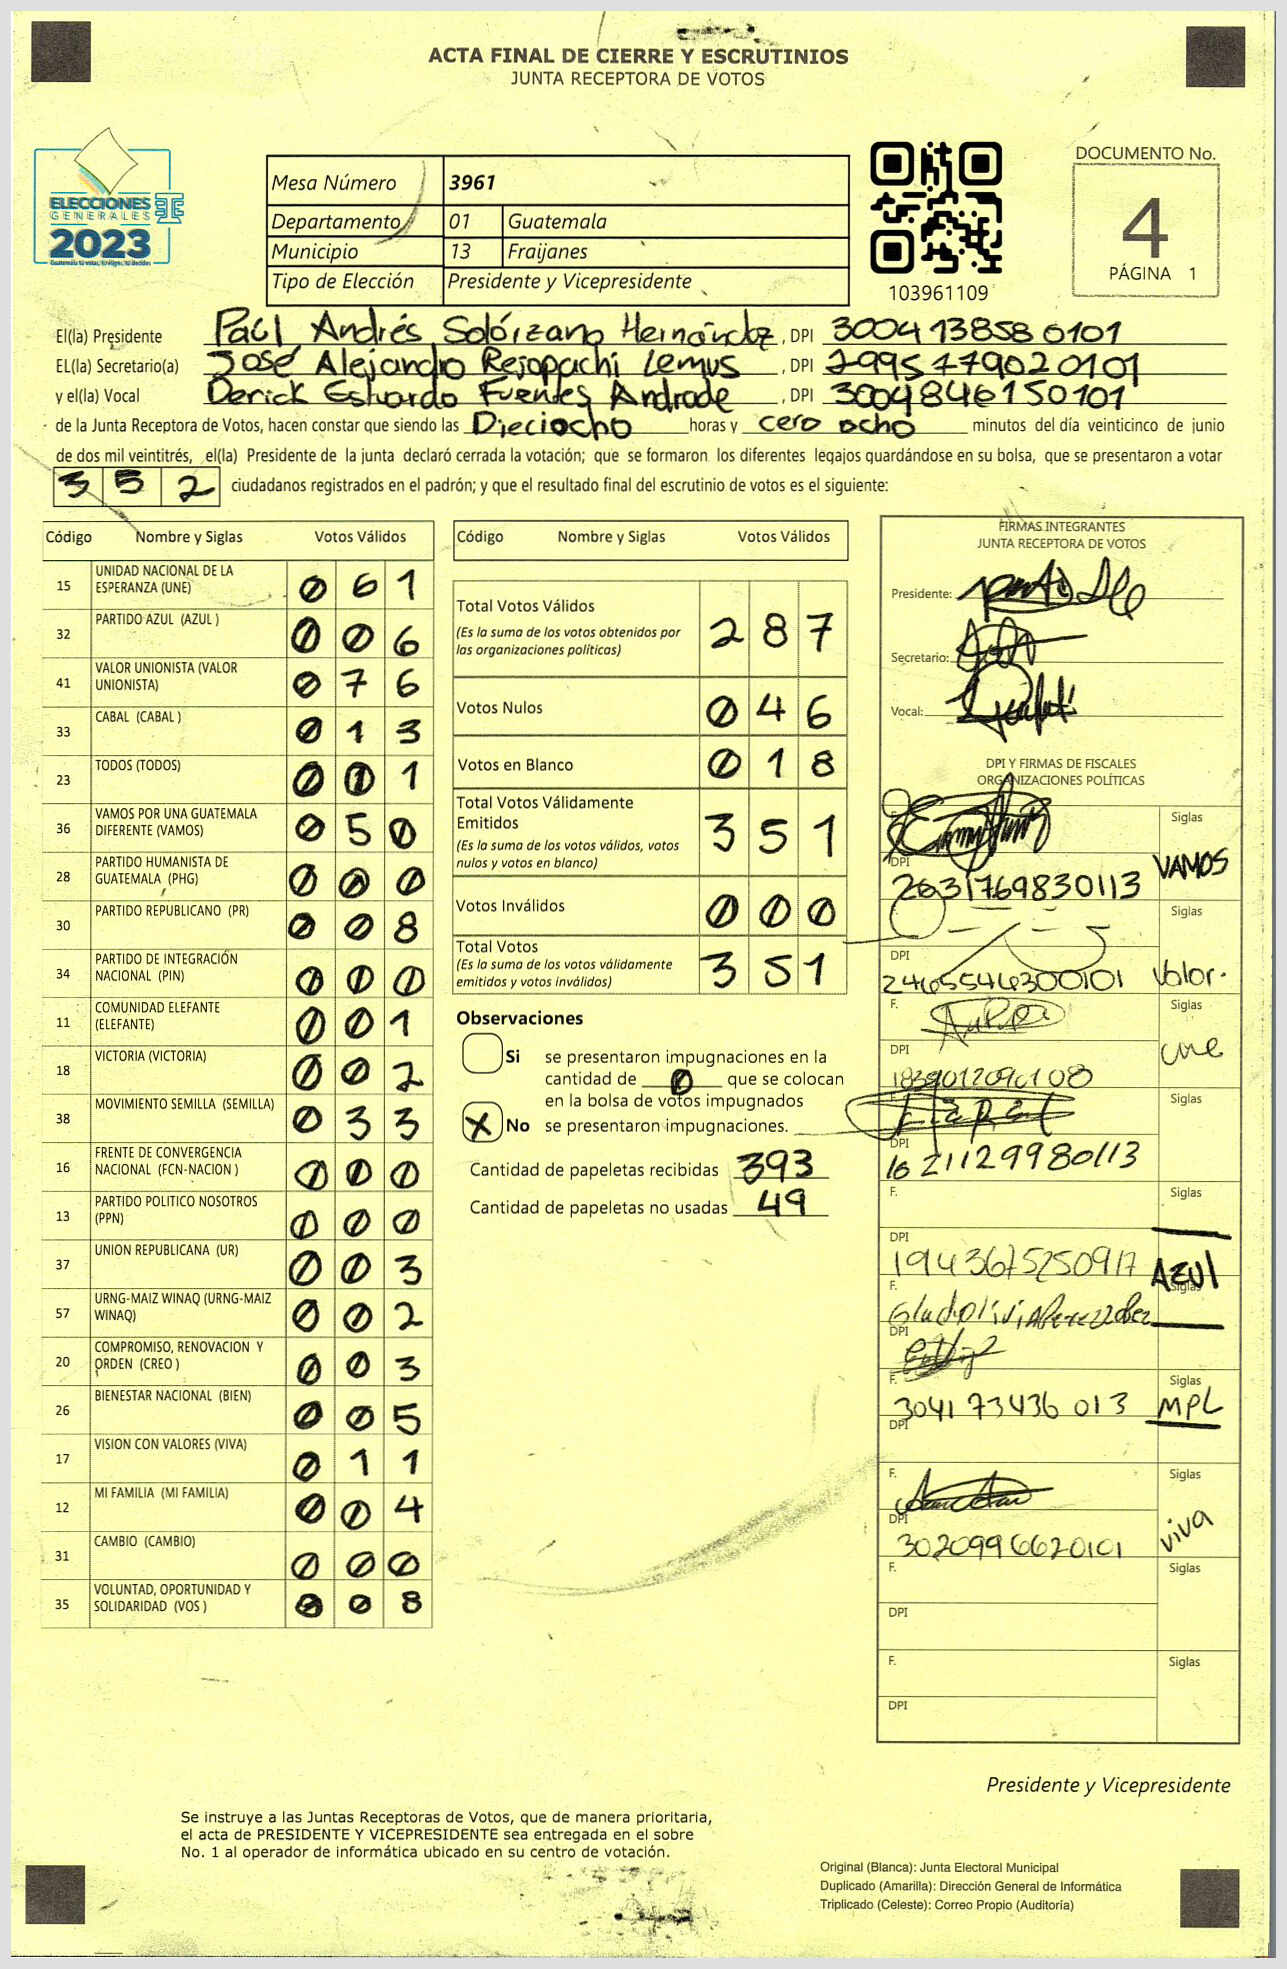 ACTA FINAL DE CIERRE Y ESCRUTINIOS
JUNTA RECEPTORA DE VOTOS
ELECCIONES
GENERALES
2023
Mesa Número 3961
Departamento 01 Guatemala
Municipio 13 Fraijanes
Tipo de Elección Presidente y Vicepresidente
103961109
DOCUMENTO No.
4
PÁGINA 1
El(la) Presidente Paúl Andrés Solórzano Hernández, DPI 3004138580101
EL(la) Secretario(a) José Alejandro Rejopachi Lemus, DPI 2995779020101
y el(la) Vocal Derick Estuardo Fuentes Andrade, DPI 3004846150101
de la Junta Receptora de Votos, hacen constar que siendo las Dieciocho horas y cero ocho minutos del día veinticinco de junio
de dos mil veintitrés, el(la) Presidente de la junta declaró cerrada la votación; que se formaron los diferentes legajos guardándose en su bolsa, que se presentaron a votar
352 ciudadanos registrados en el padrón; y que el resultado final del escrutinio de votos es el siguiente:
Código Nombre y Siglas Votos Válidos
15 UNIDAD NACIONAL DE LA ESPERANZA (UNE) 061
32 PARTIDO AZUL (AZUL ) 006
41 VALOR UNIONISTA (VALOR UNIONISTA) 076
33 CABAL (CABAL ) 013
23 TODOS (TODOS) 001
36 VAMOS POR UNA GUATEMALA DIFERENTE (VAMOS) 050
28 PARTIDO HUMANISTA DE GUATEMALA (PHG) 000
30 PARTIDO REPUBLICANO (PR) 008
34 PARTIDO DE INTEGRACIÓN NACIONAL (PIN) 000
11 COMUNIDAD ELEFANTE (ELEFANTE) 001
18 VICTORIA (VICTORIA) 002
38 MOVIMIENTO SEMILLA (SEMILLA) 033
16 FRENTE DE CONVERGENCIA NACIONAL (FCN-NACION ) 000
13 PARTIDO POLITICO NOSOTROS (PPN) 000
37 UNION REPUBLICANA (UR) 003
57 URNG-MAIZ WINAQ (URNG-MAIZ WINAQ) 002
20 COMPROMISO, RENOVACION Y ORDEN (CREO ) 003
26 BIENESTAR NACIONAL (BIEN) 005
17 VISION CON VALORES (VIVA) 011
12 MI FAMILIA (MI FAMILIA) 004
31 CAMBIO (CAMBIO) 000
35 VOLUNTAD, OPORTUNIDAD Y SOLIDARIDAD (VOS ) 008
Código Nombre y Siglas Votos Válidos
Total Votos Válidos 287
(Es la suma de los votos obtenidos por
las organizaciones políticas)
Votos Nulos 046
Votos en Blanco 018
Total Votos Válidamente
Emitidos 351
(Es la suma de los votos válidos, votos
nulos y votos en blanco)
Votos Inválidos 000
Total Votos 351
(Es la suma de los votos válidamente
emitidos y votos inválidos)
Observaciones
Si se presentaron impugnaciones en la
cantidad de 0 que se colocan
en la bolsa de votos impugnados
X No se presentaron impugnaciones.
Cantidad de papeletas recibidas 393
Cantidad de papeletas no usadas 49
FIRMAS INTEGRANTES
JUNTA RECEPTORA DE VOTOS
Presidente:
Secretario:
Vocal:
DPI Y FIRMAS DE FISCALES
ORGANIZACIONES POLÍTICAS
Siglas
DPI VAMOS
2631769830113
Siglas
DPI
2465546300101 Valor.
F. Siglas
DPI une
Siglas
DPI
1621129980113
F. Siglas
DPI
1943675250917 AZUL
F. Siglas
DPI
F. Siglas
304173436 013 MPL
DPI
F. Siglas
DPI viva
3020996620101
F. Siglas
DPI
F. Siglas
DPI
Presidente y Vicepresidente
Se instruye a las Juntas Receptoras de Votos, que de manera prioritaria,
el acta de PRESIDENTE Y VICEPRESIDENTE sea entregada en el sobre
No. 1 al operador de informática ubicado en su centro de votación.
Original (Blanca): Junta Electoral Municipal
Duplicado (Amarilla): Dirección General de Informática
Triplicado (Celeste): Correo Propio (Auditoría)